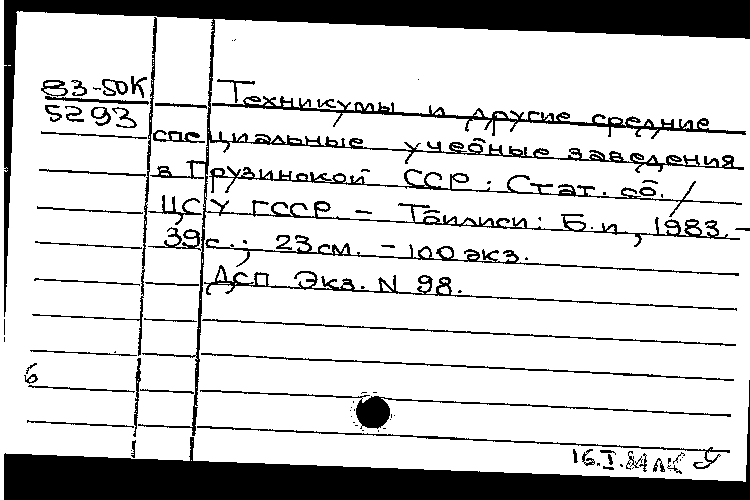 83-50К
5293
Техникумы и другие средние
специальные учебные заведения
в Грузинской ССР: Стат. сб. /
ЦСУ ГССР. – Тбилиси: Б.и, 1983. –
39 с.; 23 см. – 100 экз.
ДСП Экз. N 98.
6
16.I.84